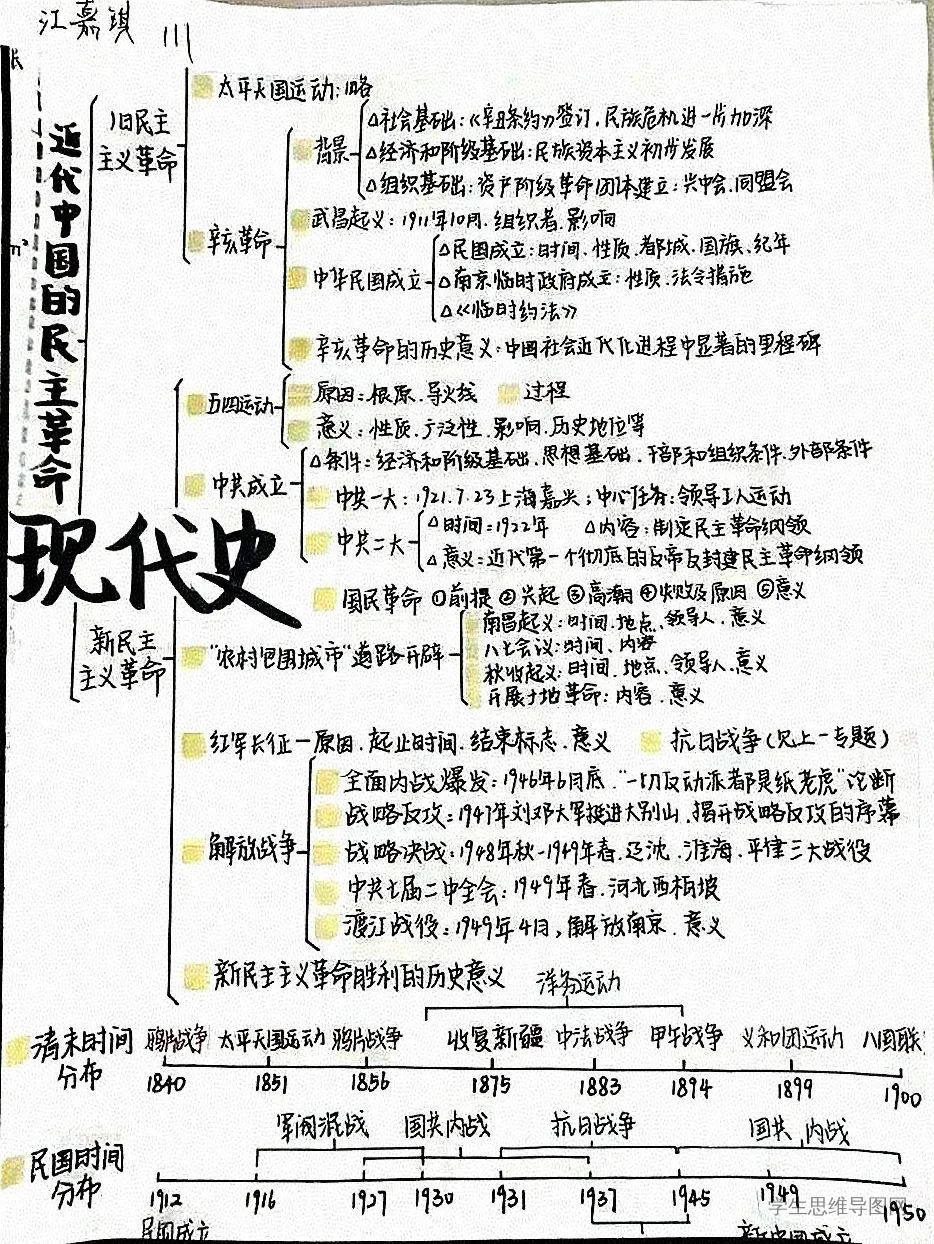 江嘉琪 111
近代中国的民主革命
现代史
旧民主
主义革命
太平天国运动:略
辛亥革命
背景
△社会基础:《辛丑条约》签订,民族危机进一步加深
△经济和阶级基础:民族资本主义初步发展
△组织基础:资产阶级革命团体建立:兴中会.同盟会
武昌起义:1911年10月.组织者.影响
中华民国成立
△民国成立:时间.性质.都城.国旗.纪年
△南京临时政府成立:性质.法令措施
△《临时约法》
辛亥革命的历史意义:中国社会近代化进程中显著的里程碑
新民主
主义革命
五四运动
原因:根原.导火线 过程
意义:性质.广泛性.影响.历史地位等
中共成立
△条件:经济和阶级基础.思想基础.干部和组织条件.外部条件
中共一大:1921.7.23上海嘉兴;中心任务:领导工人运动
中共二大
△时间:1922年 △内容:制定民主革命纲领
△意义:近代第一个彻底的反帝反封建民主革命纲领
国民革命 ①前提 ②兴起 ③高潮 ④失败及原因 ⑤意义
"农村包围城市"道路开辟
南昌起义:时间.地点.领导人.意义
八七会议:时间、内容
秋收起义:时间.地点.领导人.意义
开展土地革命:内容.意义
红军长征—原因.起止时间.结束标志.意义 抗日战争(见上一专题)
解放战争
全面内战爆发:1946年6月底."一切反动派都是纸老虎"论断
战略反攻:1947年刘邓大军挺进大别山.揭开战略反攻的序幕
战略决战:1948年秋-1949年春.辽沈.淮海.平津三大战役
中共七届二中全会:1949年春.河北西柏坡
渡江战役:1949年4月,解放南京.意义
新民主主义革命胜利的历史意义
洋务运动
清末时间
分布
鸦片战争 太平天国运动 鸦片战争 收复新疆 中法战争 甲午战争 义和团运动 八国联
1840 1851 1856 1875 1883 1894 1899 1900
军阀混战 国共内战 抗日战争 国共内战
民国时间
分布
1912 1916 1927 1930 1931 1937 1945 1949 1950
民国成立 新中国成立
学生思维导图网